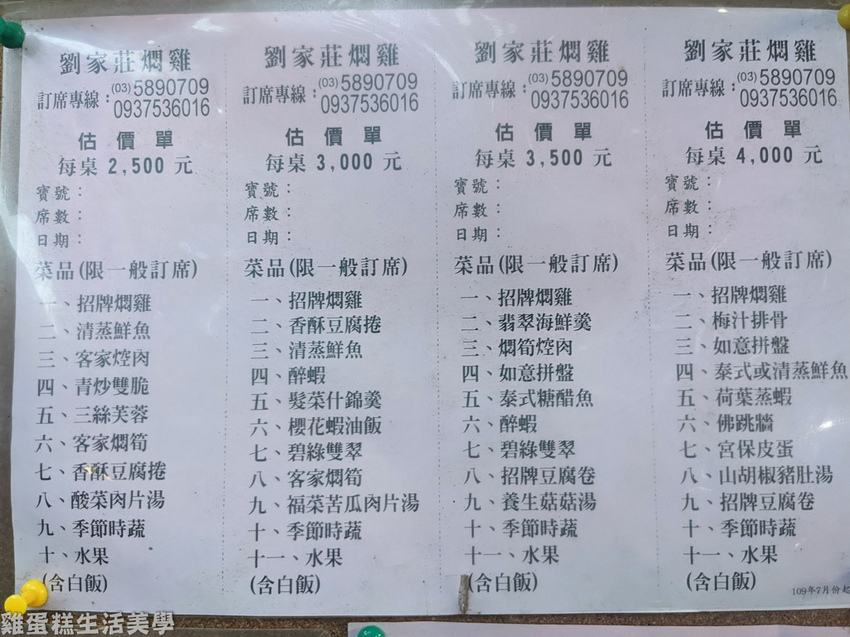 劉家莊燜雞
訂席專線：(03)5890709
0937536016
估價單
每桌 2,500 元
寶號：
席數：
日期：
菜品(限一般訂席)
一、招牌燜雞
二、清蒸鮮魚
三、客家焢肉
四、青炒雙脆
五、三絲芙蓉
六、客家燜筍
七、香酥豆腐捲
八、酸菜肉片湯
九、季節時蔬
十、水果
(含白飯)
劉家莊燜雞
訂席專線：(03)5890709
0937536016
估價單
每桌 3,000 元
寶號：
席數：
日期：
菜品(限一般訂席)
一、招牌燜雞
二、香酥豆腐捲
三、清蒸鮮魚
四、醉蝦
五、髮菜什錦羹
六、櫻花蝦油飯
七、碧綠雙翠
八、客家燜筍
九、福菜苦瓜肉片湯
十、季節時蔬
十一、水果
(含白飯)
劉家莊燜雞
訂席專線：(03)5890709
0937536016
估價單
每桌 3,500 元
寶號：
席數：
日期：
菜品(限一般訂席)
一、招牌燜雞
二、翡翠海鮮羹
三、燜筍焢肉
四、如意拼盤
五、泰式糖醋魚
六、醉蝦
七、碧綠雙翠
八、招牌豆腐卷
九、養生菇菇湯
十、季節時蔬
十一、水果
(含白飯)
劉家莊燜雞
訂席專線：(03)5890709
0937536016
估價單
每桌 4,000 元
寶號：
席數：
日期：
菜品(限一般訂席)
一、招牌燜雞
二、梅汁排骨
三、如意拼盤
四、泰式或清蒸鮮魚
五、荷葉蒸蝦
六、佛跳牆
七、宮保皮蛋
八、山胡椒豬肚湯
九、招牌豆腐卷
十、季節時蔬
十一、水果
(含白飯)
109年7月份起
雞蛋糕生活美學